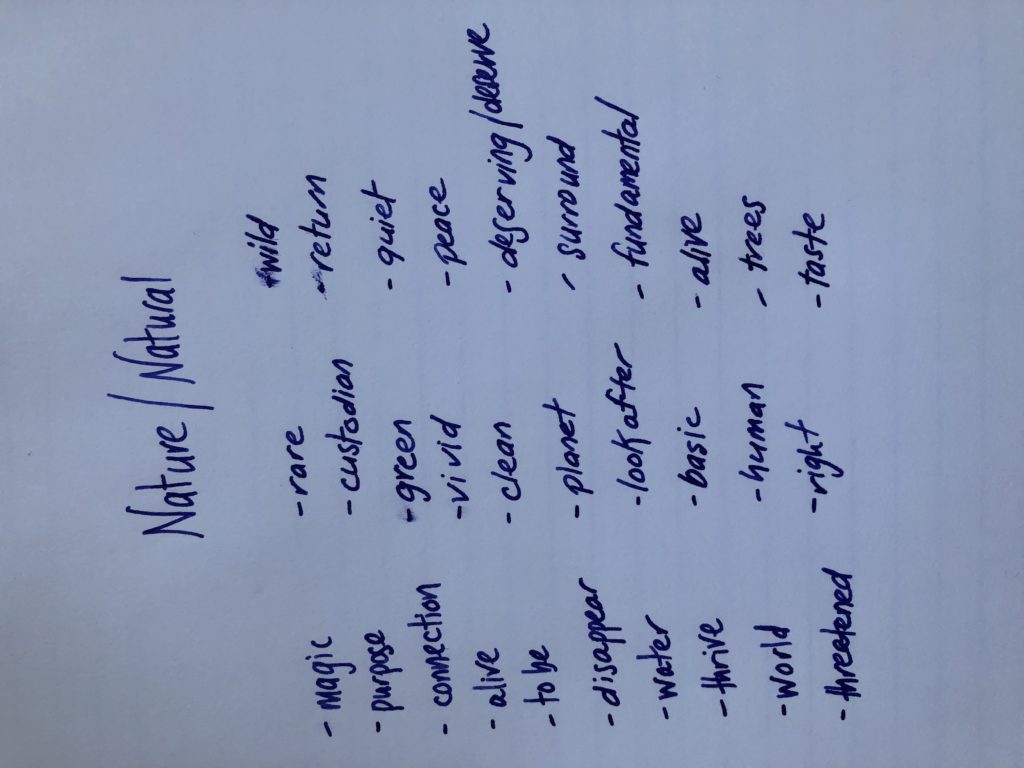 Nature / Natural
- magic
- purpose
- connection
- alive
- to be
- disappear
- water
- thrive
- world
- threatened
- rare
- custodian
- green
- vivid
- clean
- planet
- look after
- basic
- human
- right
- wild
- return
- quiet
- peace
- deserving/deserve
- surround
- fundamental
- alive
- trees
- taste